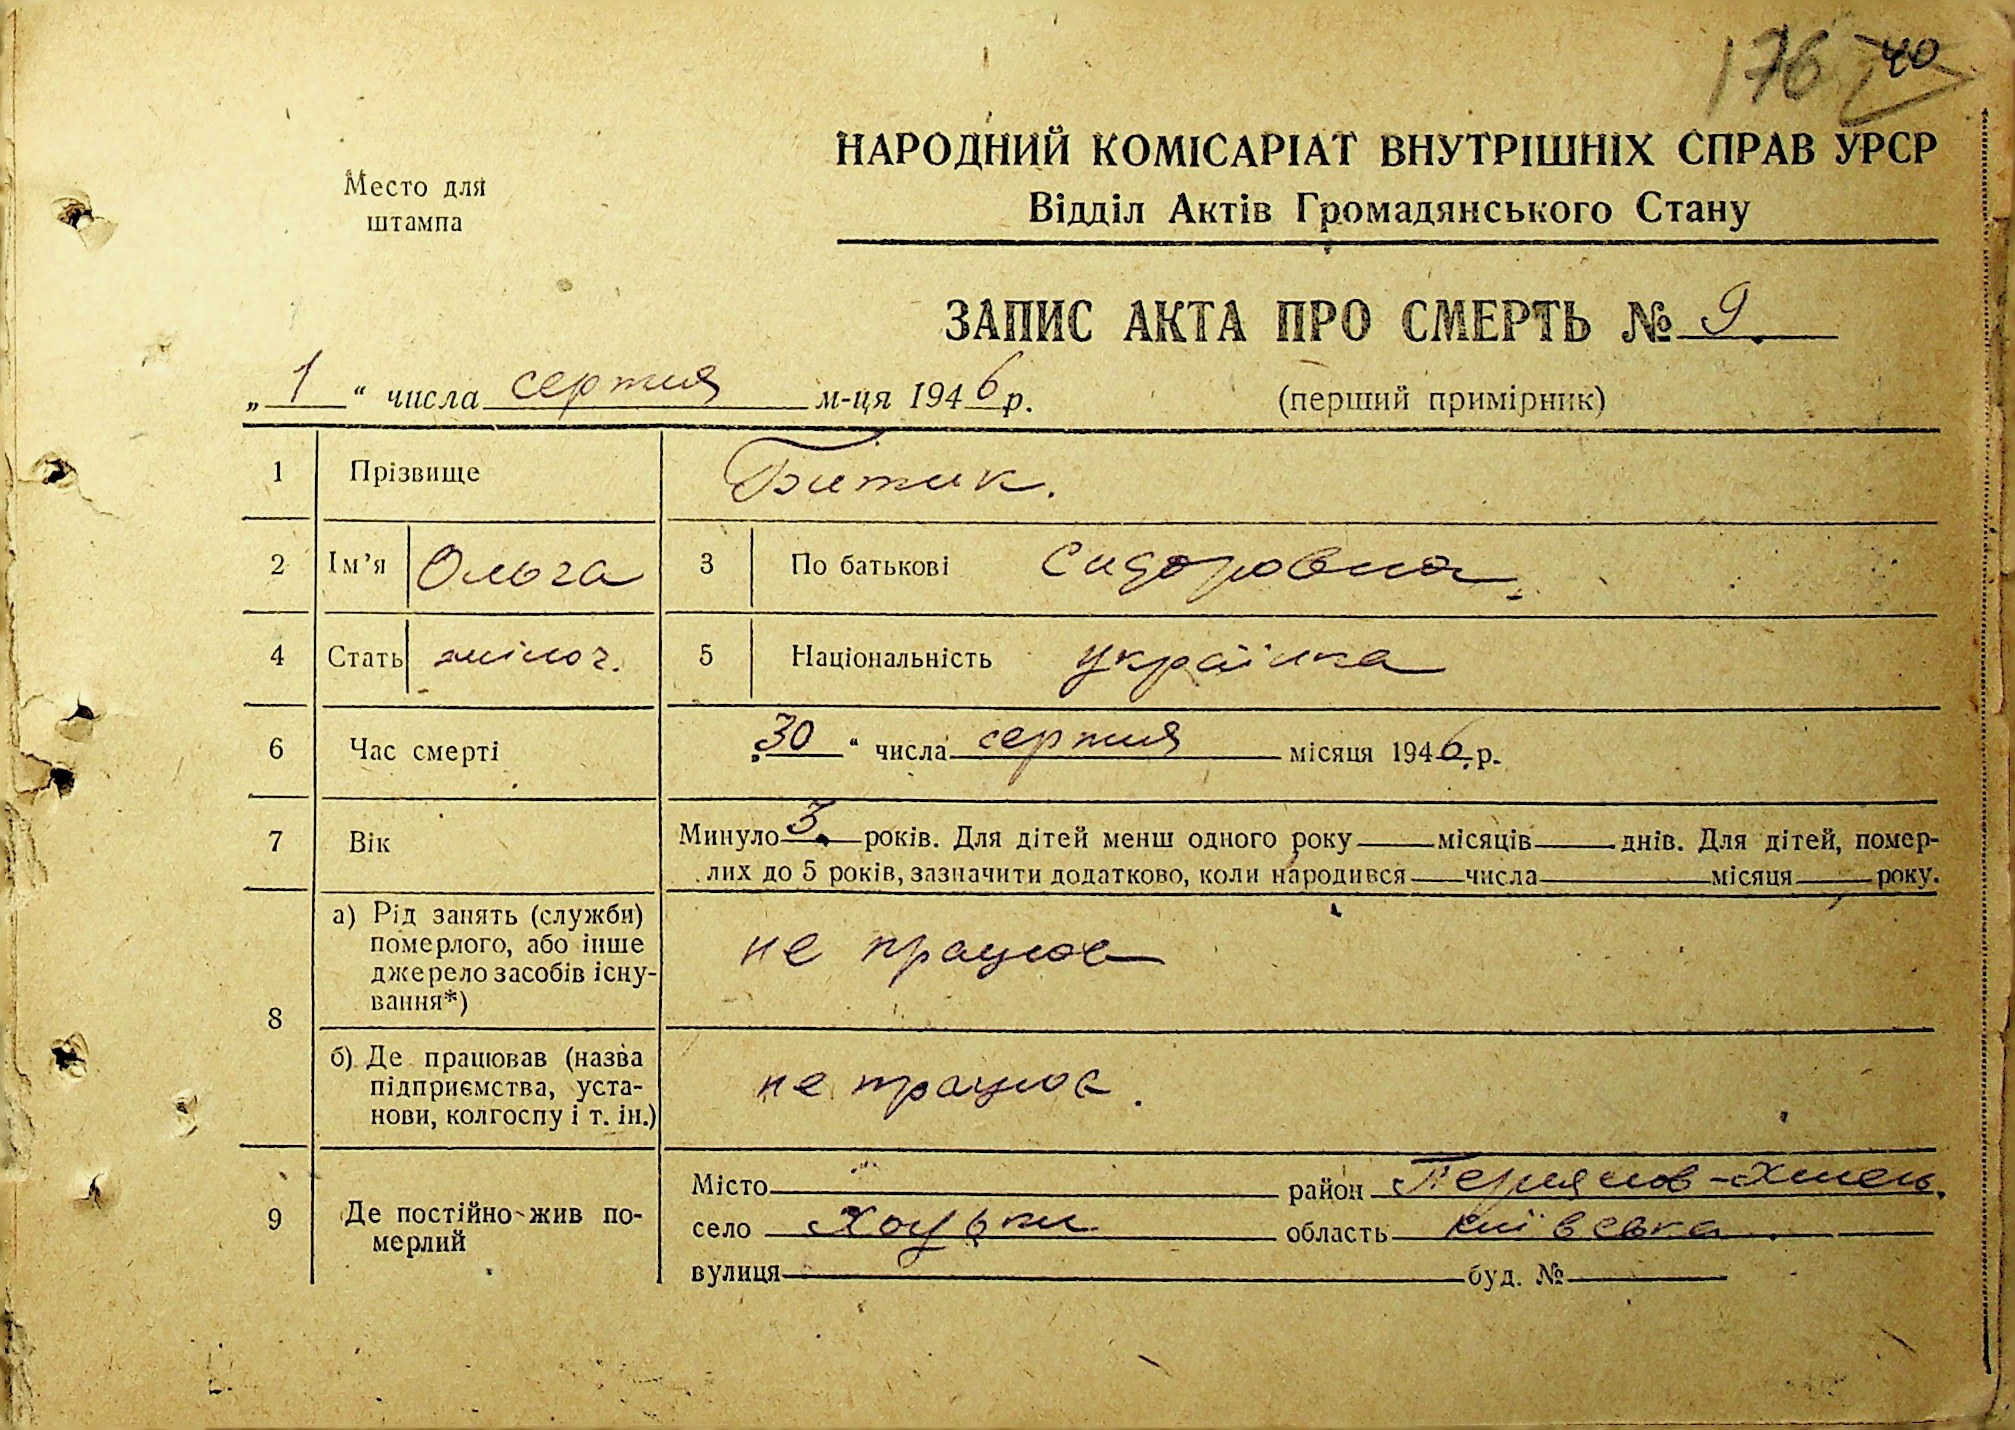 176 40
Место для
штампа
НАРОДНИЙ КОМІСАРІАТ ВНУТРІШНІХ СПРАВ УРСР
Відділ Актів Громадянського Стану
ЗАПИС АКТА ПРО СМЕРТЬ № 9.
„ 1 “ числа серпня м-ця 1946 р. (перший примірник)
1 Прізвище Битик.
2 Ім’я Ольга 3 По батькові Сидоровна
4 Стать жіноч. 5 Національність українка
6 Час смерті „30“ числа серпня місяця 1946 р.
7 Вік Минуло 3. років. Для дітей менш одного року місяців днів. Для дітей, помер-
лих до 5 років, зазначити додатково, коли народився числа місяця року.
8 а) Рід занять (служби)
померлого, або інше
джерело засобів існу-
вання*) не працює
б) Де працював (назва
підприємства, уста-
нови, колгоспу і т. ін.) не працює.
9 Де постійно жив по-
мерлий
Місто район
село Хоцьки область київська
вулиця буд. №